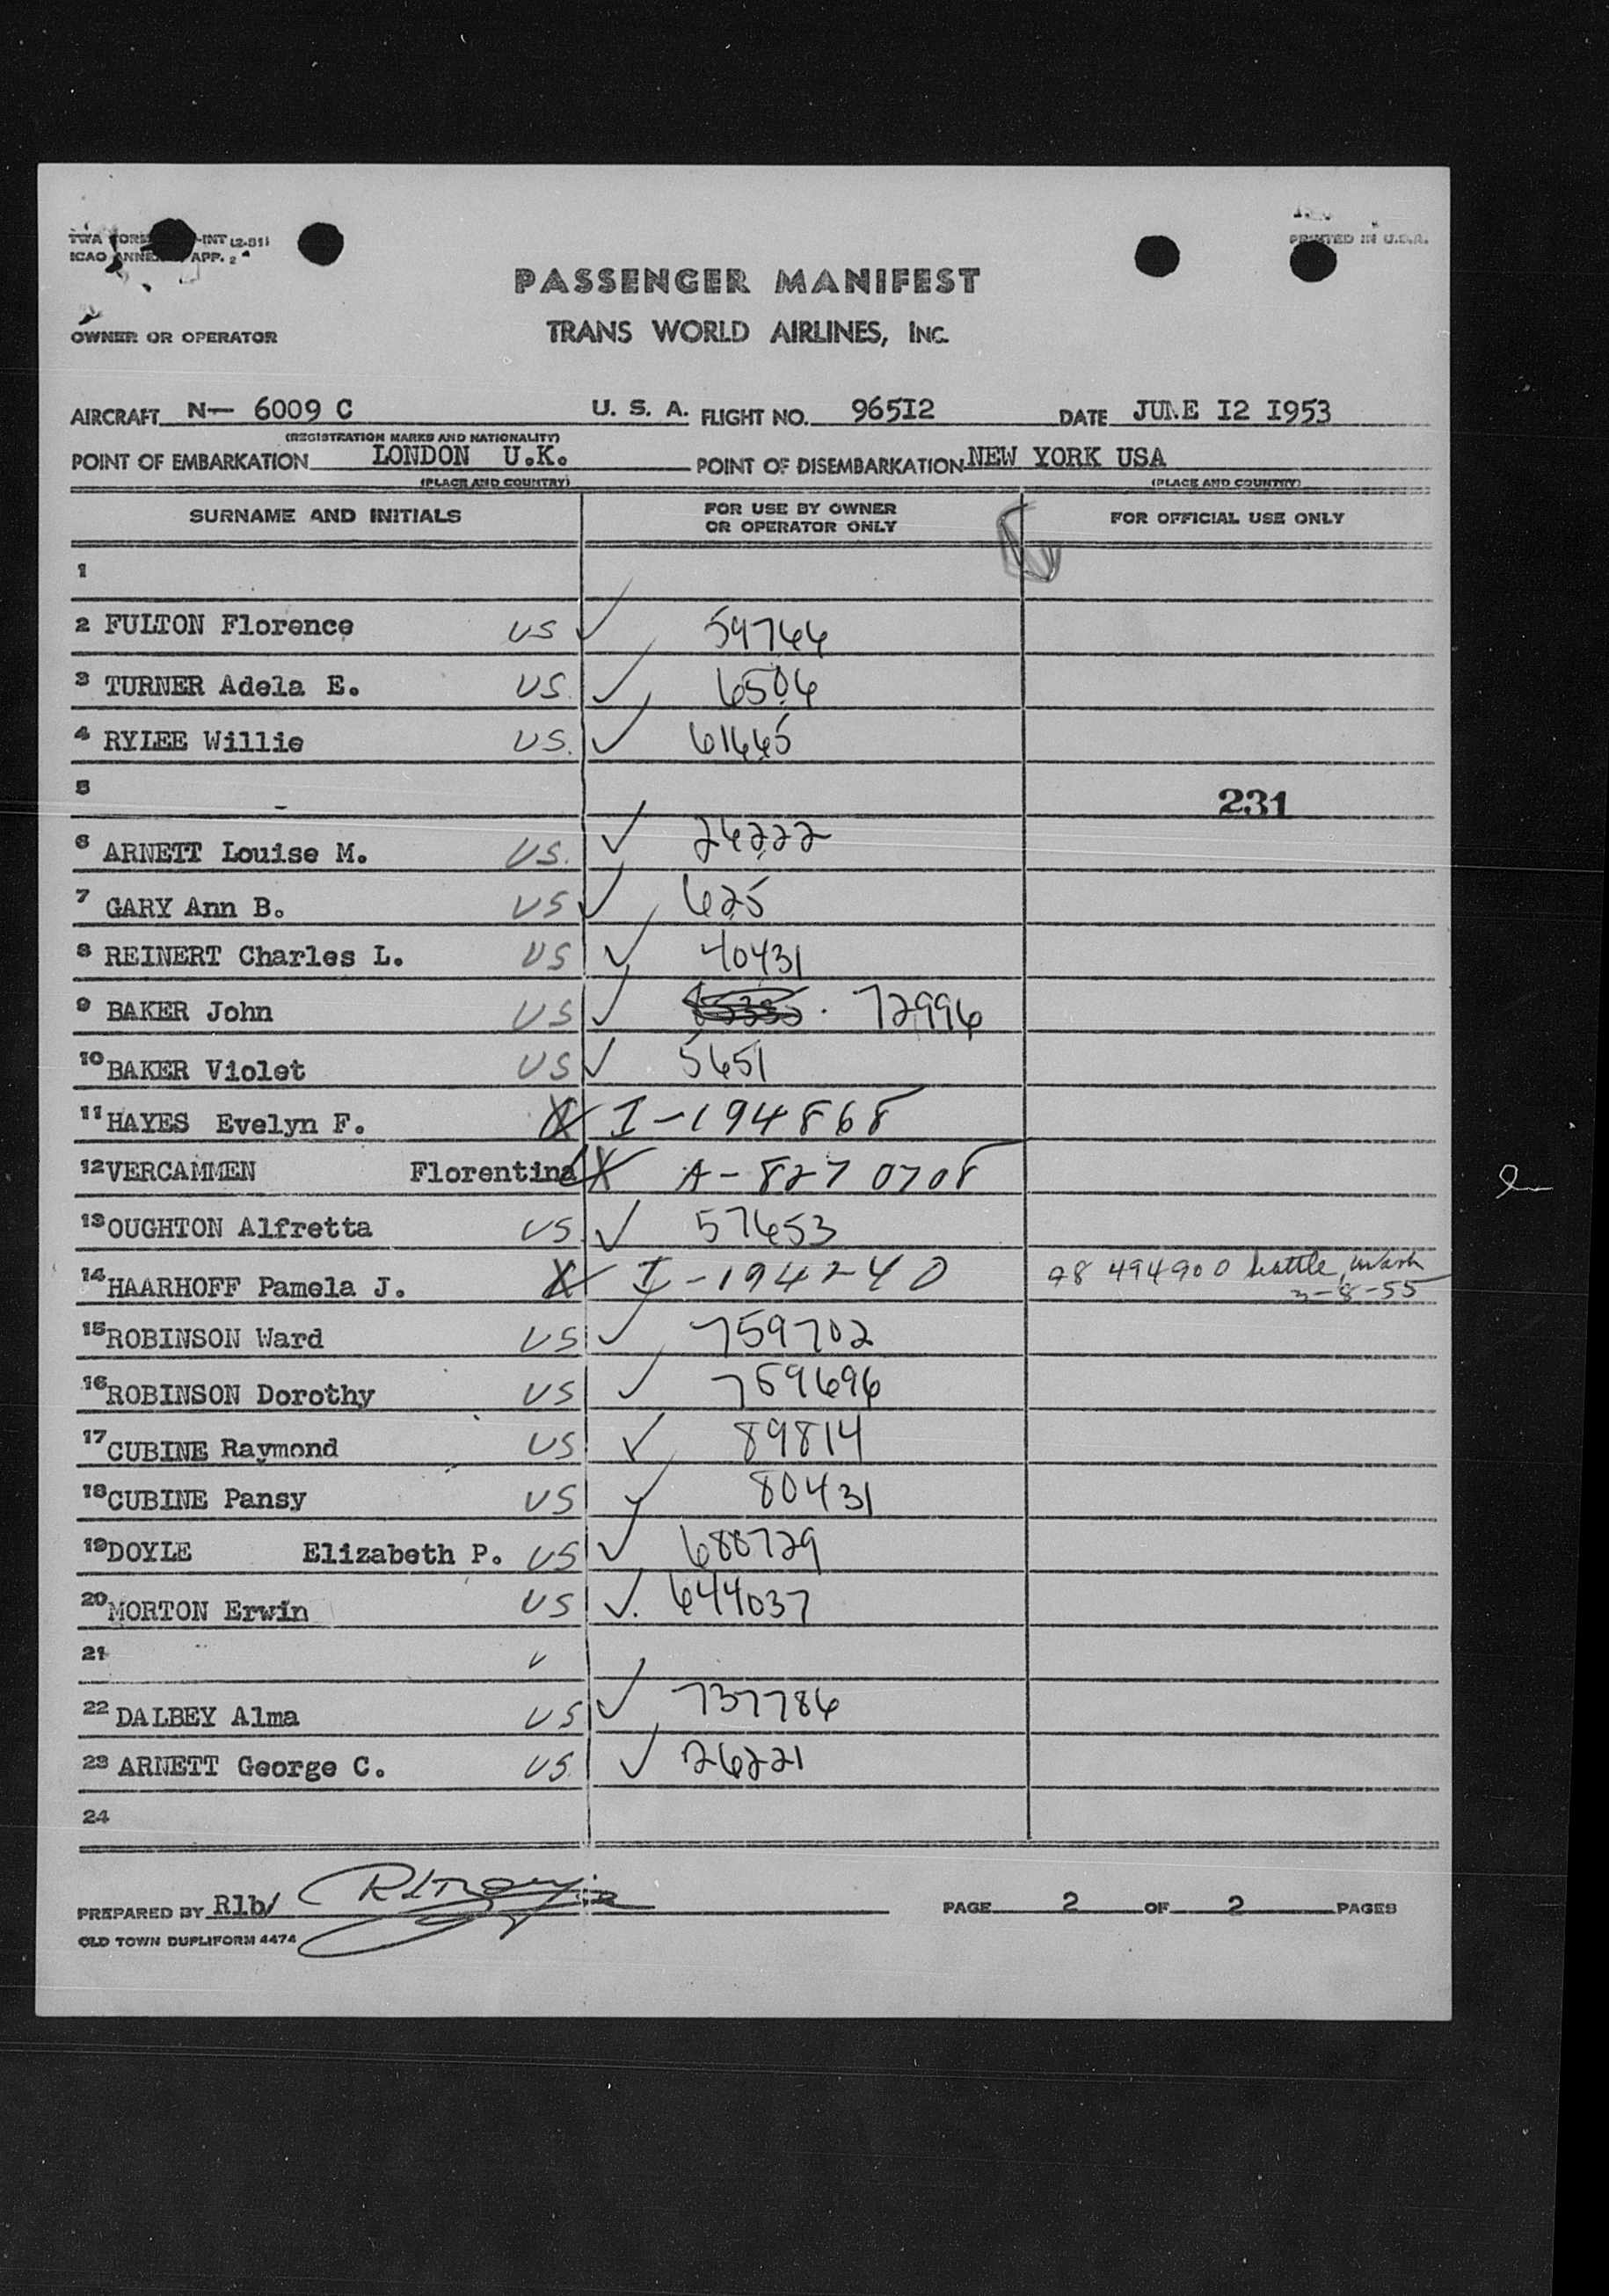 TWA FORM -INT (2-51)
PRINTED IN U.S.A.
ICAO ANNEX APP. 2
PASSENGER MANIFEST
OWNER OR OPERATOR
TRANS WORLD AIRLINES, INC.
AIRCRAFT N— 6009 C U. S. A. FLIGHT NO. 965I2 DATE JUNE I2 I953
(REGISTRATION MARKS AND NATIONALITY)
POINT OF EMBARKATION LONDON U.K. POINT OF DISEMBARKATION NEW YORK USA
(PLACE AND COUNTRY) (PLACE AND COUNTRY)
SURNAME AND INITIALS FOR USE BY OWNER OR OPERATOR ONLY FOR OFFICIAL USE ONLY
1
2 FULTON Florence US ✓ 59766
3 TURNER Adela E. US. ✓ 6506
4 RYLEE Willie US. ✓ 61665
5 231
6 ARNETT Louise M. US. ✓ 26222
7 GARY Ann B. US ✓ 625
8 REINERT Charles L. US ✓ 40431
9 BAKER John US ✓ 72996
10 BAKER Violet US ✓ 5651
11 HAYES Evelyn F. X I-194868
12 VERCAMMEN Florentina X A-827 0708
13 OUGHTON Alfretta US. ✓ 57653
14 HAARHOFF Pamela J. X I-194240 494900 Wash
-8-55
15 ROBINSON Ward US ✓ 759702
16 ROBINSON Dorothy US ✓ 759696
17 CUBINE Raymond US ✓ 89814
18 CUBINE Pansy US ✓ 80431
19 DOYLE Elizabeth P. US ✓ 688729
20 MORTON Erwin US ✓. 644037
21 ✓
22 DALBEY Alma US ✓ 737786
23 ARNETT George C. US. ✓ 26221
24
PREPARED BY Rlb/ PAGE 2 OF 2 PAGES
OLD TOWN DUPLIFORM 4474